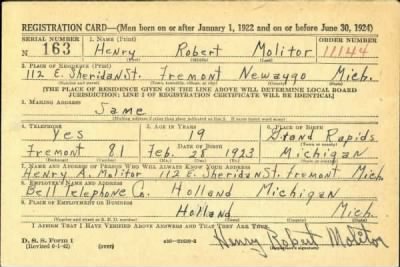 REGISTRATION CARD—(Men born on or after January 1, 1922 and on or before June 30, 1924)
SERIAL NUMBER 1. NAME (Print) ORDER NUMBER
N 163 Henry Robert Molitor 11144
(First) (Middle) (Last)
2. PLACE OF RESIDENCE (Print)
112 E. Sheridan St. Fremont Newaygo Mich.
[THE PLACE OF RESIDENCE GIVEN ON THE LINE ABOVE WILL DETERMINE LOCAL BOARD
JURISDICTION; LINE 2 OF REGISTRATION CERTIFICATE WILL BE IDENTICAL]
3. MAILING ADDRESS
Same
4. TELEPHONE 5. AGE IN YEARS 6. PLACE OF BIRTH
Yes 19 Grand Rapids
DATE OF BIRTH
Fremont 81 Feb. 28 1923 Michigan
7. NAME AND ADDRESS OF PERSON WHO WILL ALWAYS KNOW YOUR ADDRESS
Henry A. Molitor 112 E. Sheridan St. Fremont Mich.
8. EMPLOYER'S NAME AND ADDRESS
Bell Telephone Co. Holland Michigan
9. PLACE OF EMPLOYMENT OR BUSINESS
Holland Mich.
I AFFIRM THAT I HAVE VERIFIED ABOVE ANSWERS AND THAT THEY ARE TRUE.
D. S. S. Form 1
(over)
Henry Robert Molitor